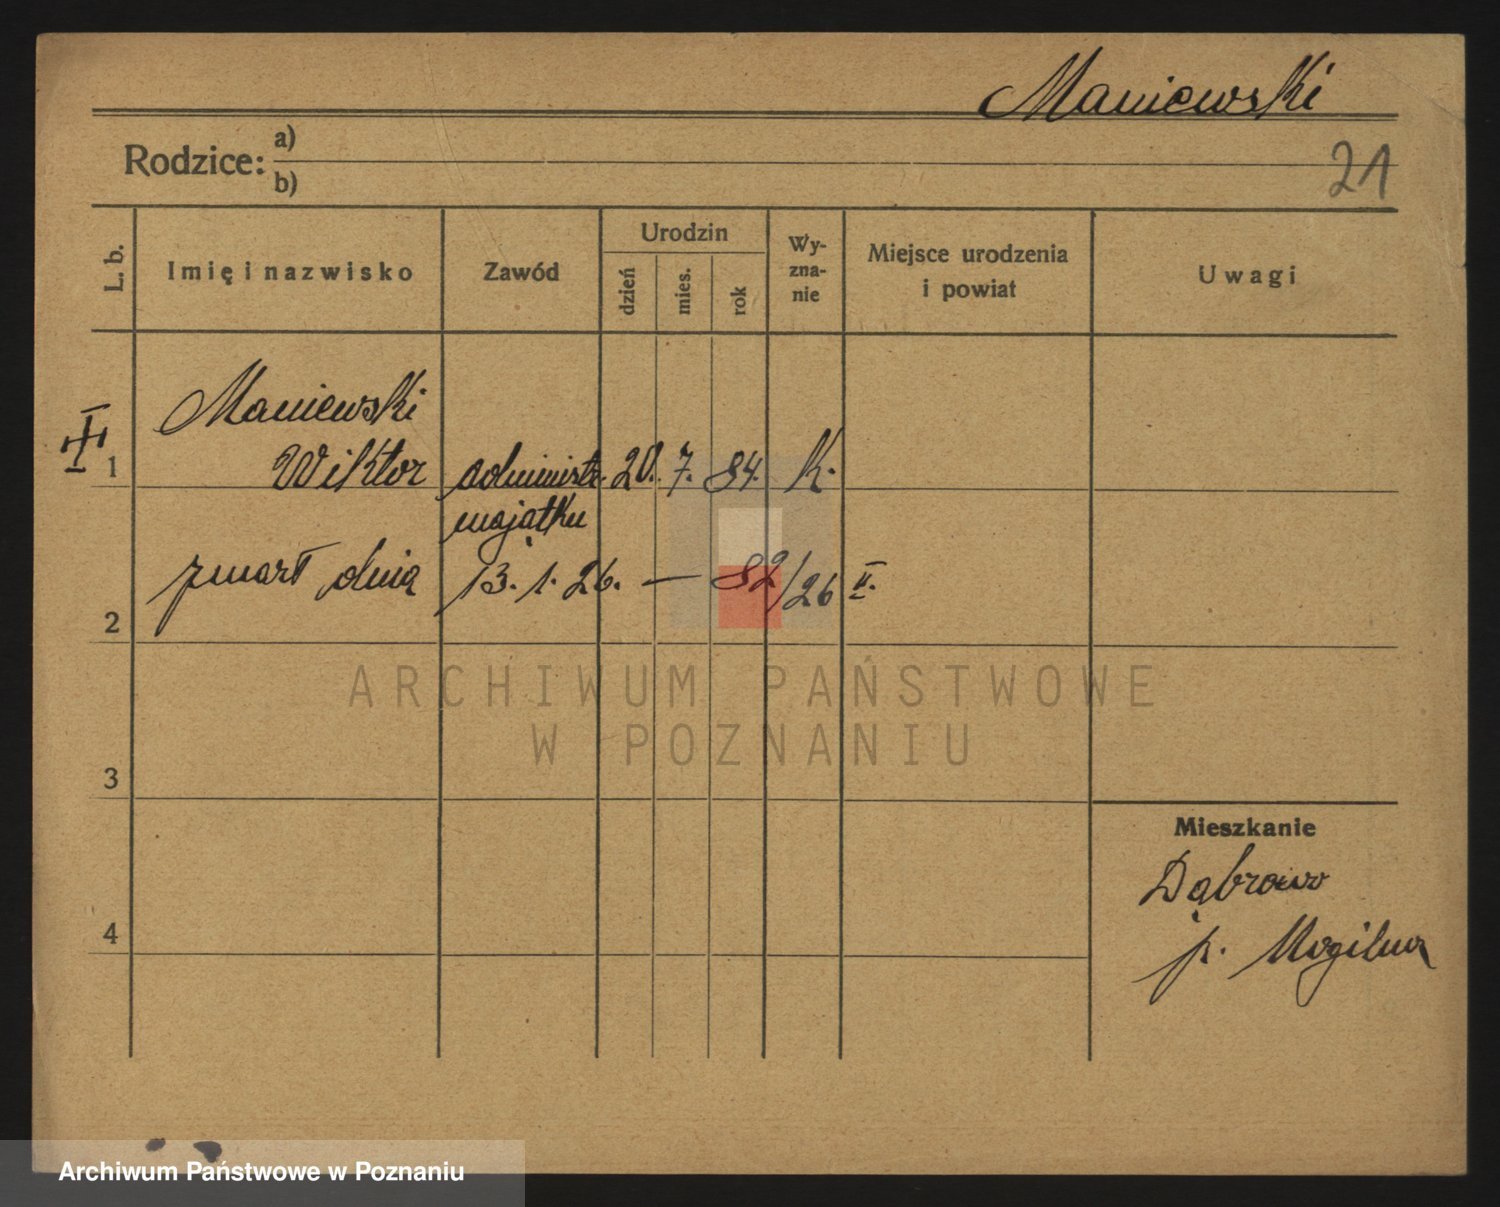 Maniewski
Rodzice: a)
b)
21
L. b.
Imię i nazwisko
Zawód
Urodzin
dzień
mies.
rok
Wy-
zna-
nie
Miejsce urodzenia
i powiat
Uwagi
1
Maniewski
Wiktor
administr.
majątku
20. 7. 84.
K.
2
zmarł dnia 13. 1. 26. — 82/26 II.
3
4
Mieszkanie
Dąbrowo
p. Mogilna
ARCHIWUM PAŃSTWOWE
W POZNANIU
Archiwum Państwowe w Poznaniu